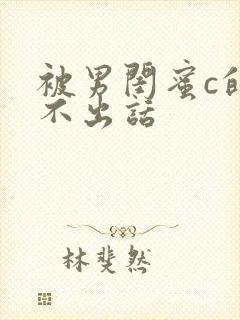 被男閨蜜c的
不出話
林斐然